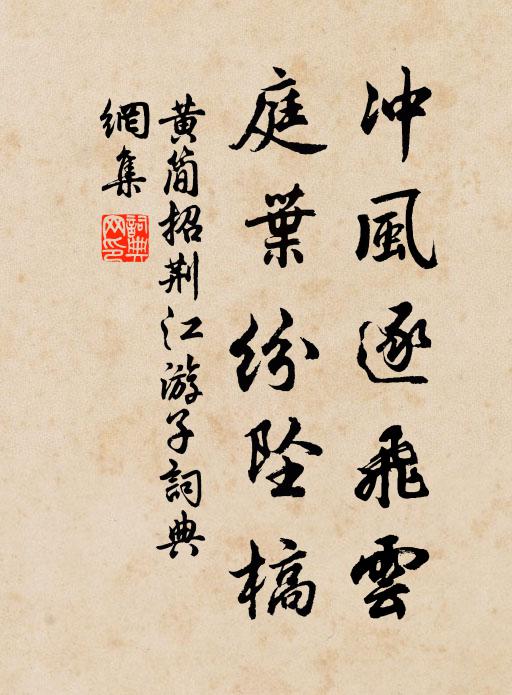 冲風逐飛雲
庭葉紛墜槁
黄簡招荆江游子詞典
網集
詞典網印